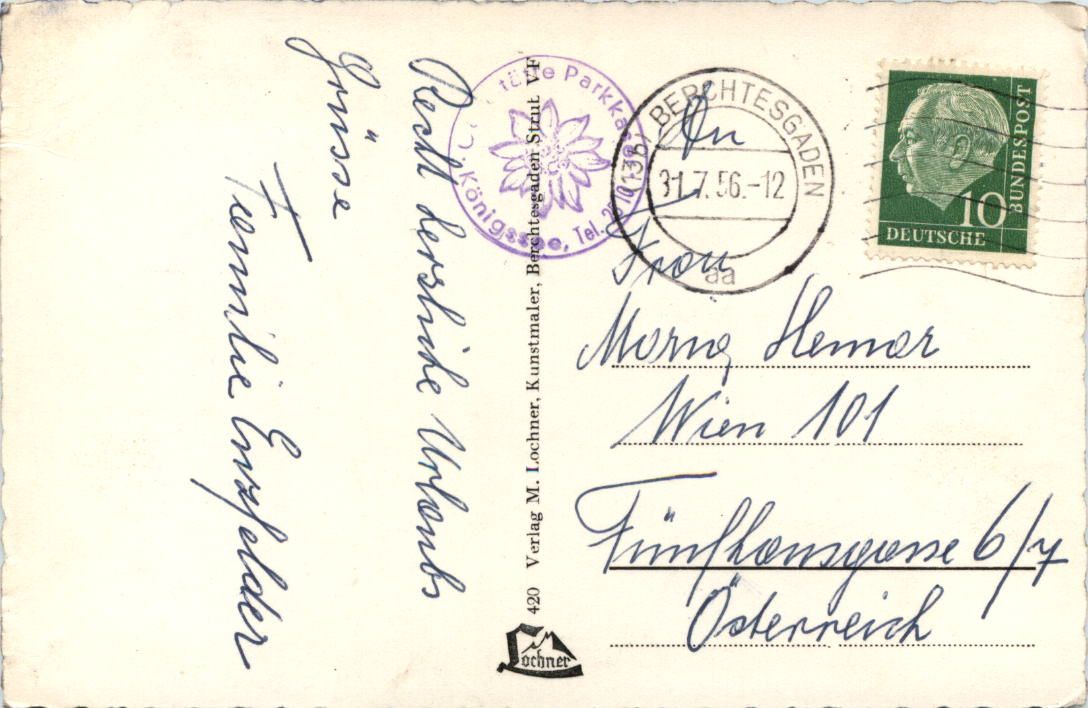 Recht herzliche Urlaubs
Grüsse
Familie Enzfelder
Parkka
Königssee, Tel.
420 Verlag M. Lochner, Kunstmaler, Berchtesgaden Strut VF
Lochner
BERCHTESGADEN
31.7.56.-12
aa
DEUTSCHE
BUNDESPOST
10
An
Frau
Hemar
Wien 101
Fünfhausgasse 6/7
Österreich